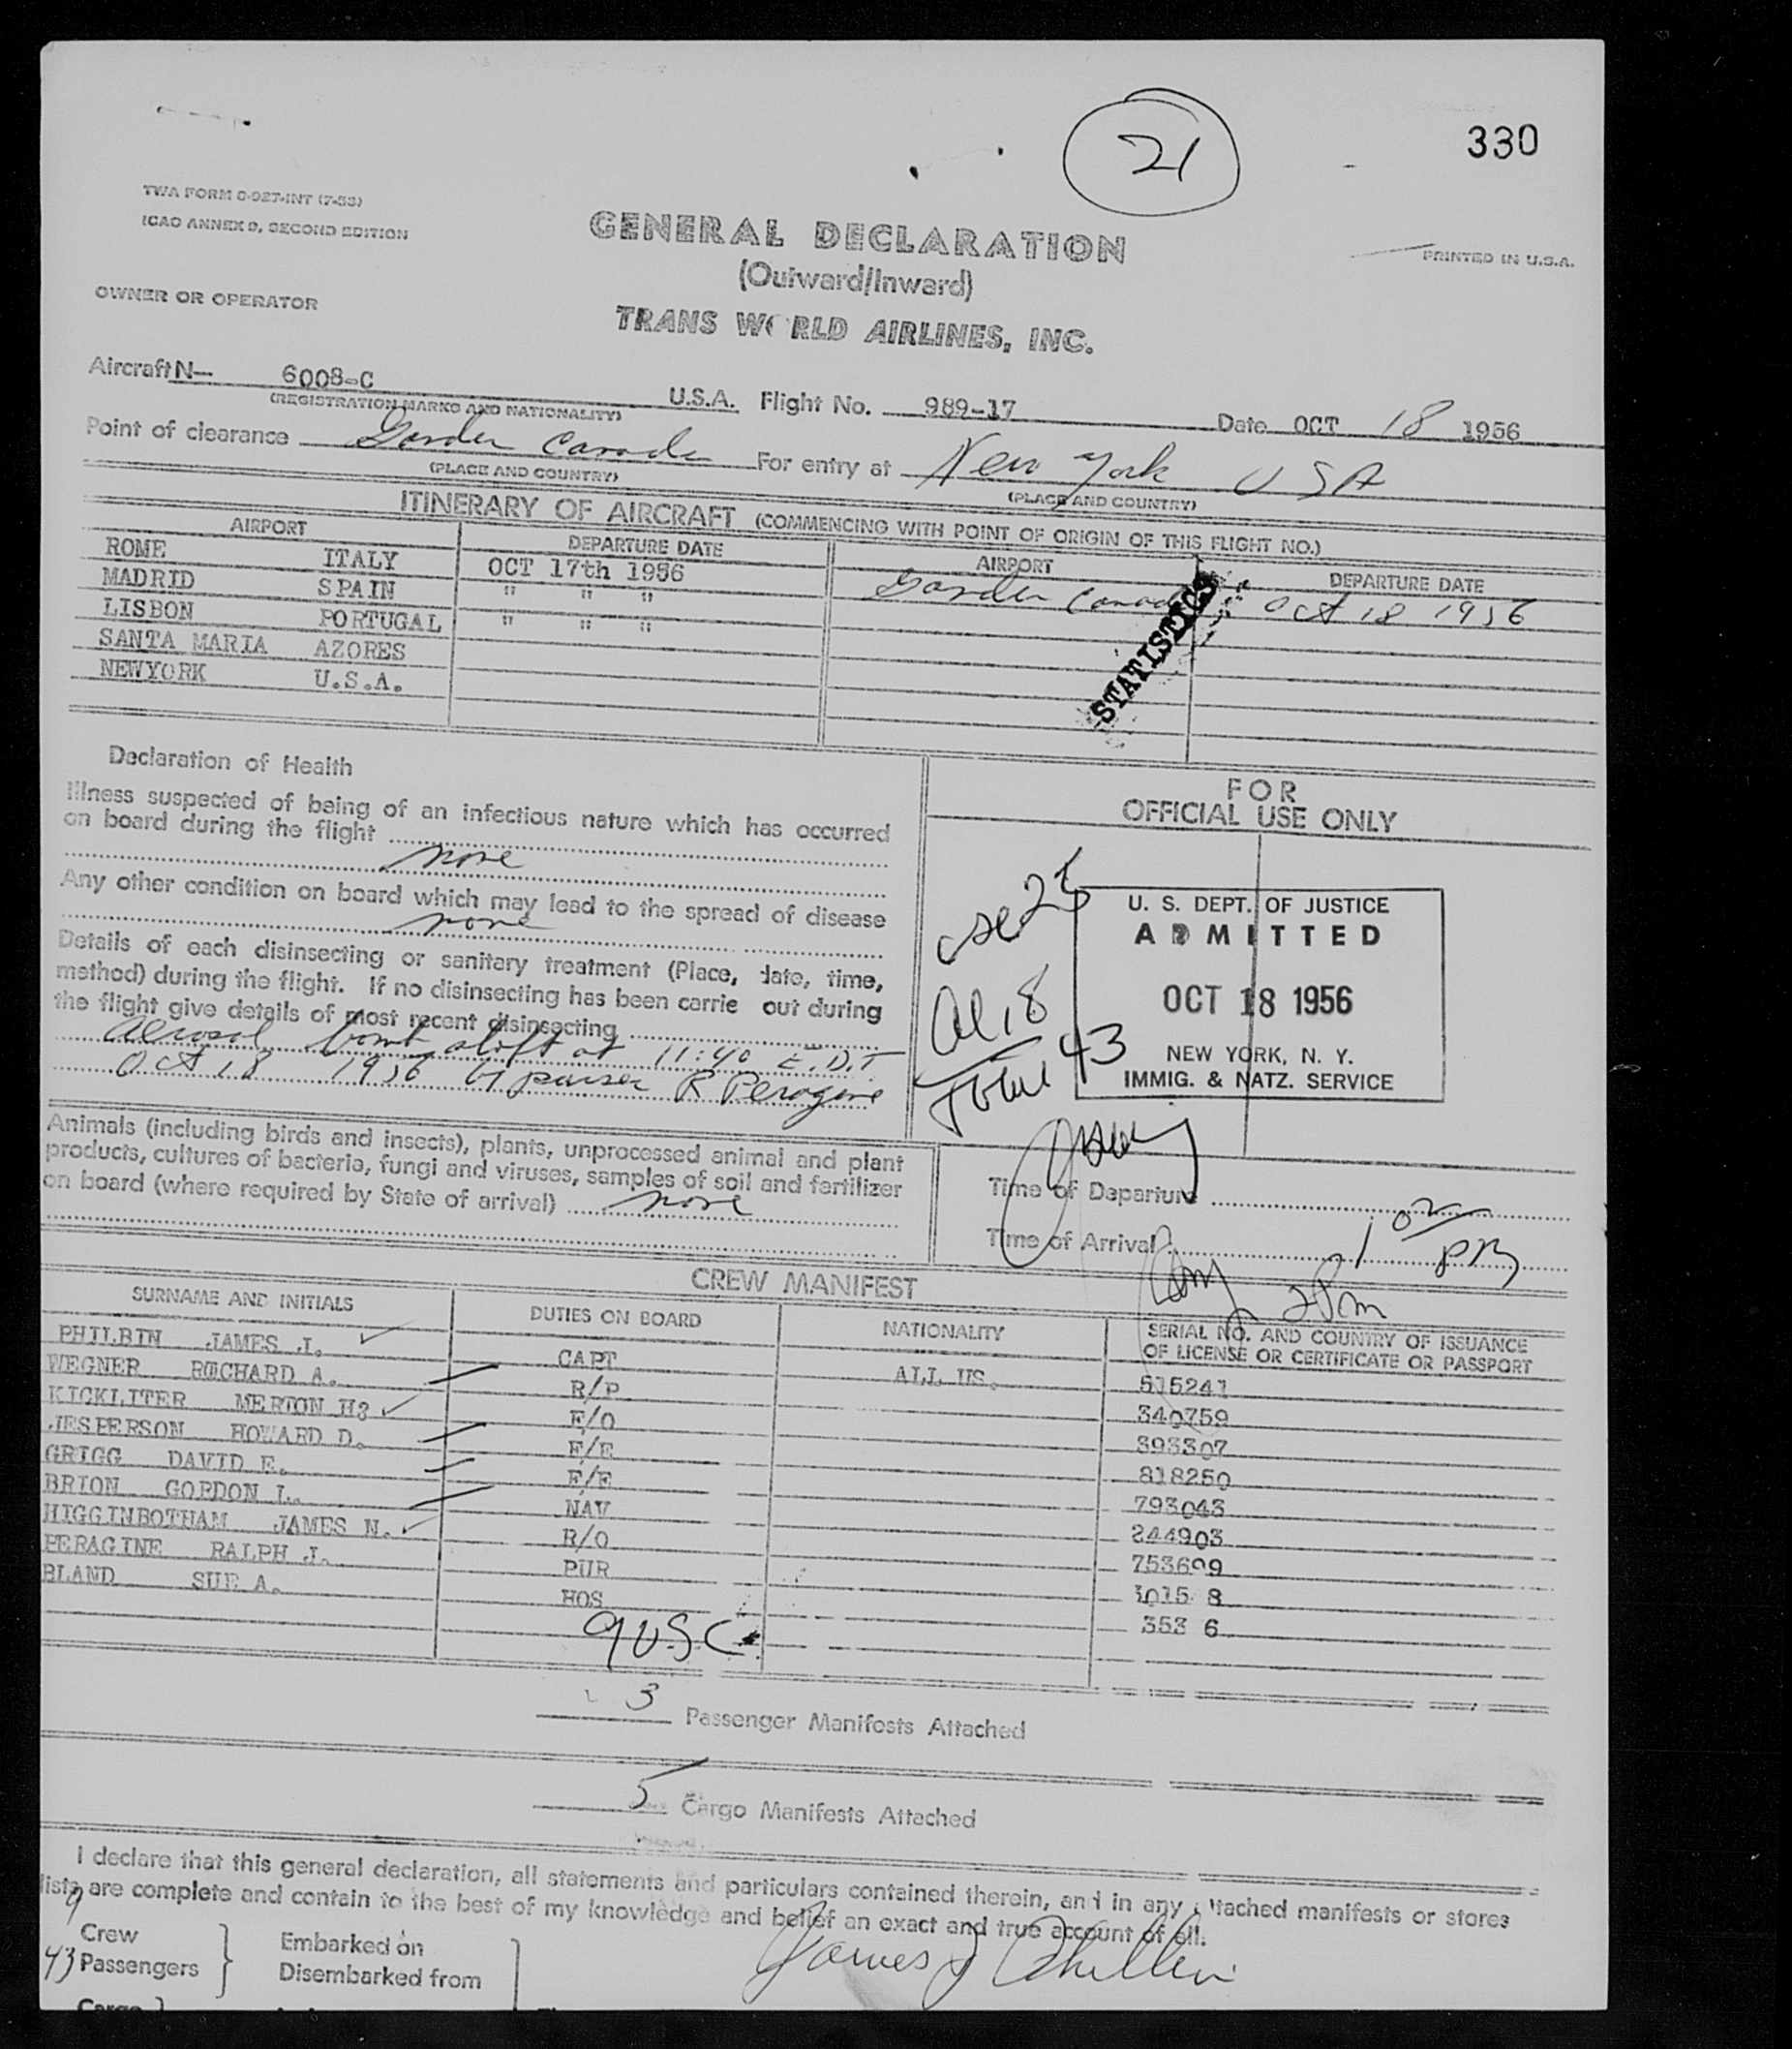 21
330
TWA FORM O-927-INT (7-53)
ICAO ANNEX 9, SECOND EDITION
GENERAL DECLARATION
(Outward/Inward)
PRINTED IN U.S.A.
OWNER OR OPERATOR
TRANS WORLD AIRLINES, INC.
Aircraft N- 6008-C U.S.A. Flight No. 989-17 Date OCT 18 1956
(REGISTRATION MARKS AND NATIONALITY)
Point of clearance Gander Canada For entry at New York USA
(PLACE AND COUNTRY) (PLACE AND COUNTRY)
ITINERARY OF AIRCRAFT (COMMENCING WITH POINT OF ORIGIN OF THIS FLIGHT NO.)
AIRPORT DEPARTURE DATE AIRPORT DEPARTURE DATE
ROME ITALY OCT 17th 1956 Gander Canada Oct 18 1956
MADRID SPAIN " " "
LISBON PORTUGAL " " "
SANTA MARIA AZORES
NEWYORK U.S.A.
STATISTICS
Declaration of Health
Illness suspected of being of an infectious nature which has occurred
on board during the flight
none
Any other condition on board which may lead to the spread of disease
none
Details of each disinsecting or sanitary treatment (Place, date, time,
method) during the flight. If no disinsecting has been carrie out during
the flight give details of most recent disinsecting
aerosol bomb aloft at 11:40 E.D.T
Oct 18 1956 by purser R Peragine
FOR
OFFICIAL USE ONLY
U. S. DEPT. OF JUSTICE
ADMITTED
OCT 18 1956
NEW YORK, N. Y.
IMMIG. & NATZ. SERVICE
25
al 18
Total 43
Animals (including birds and insects), plants, unprocessed animal and plant
products, cultures of bacteria, fungi and viruses, samples of soil and fertilizer
on board (where required by State of arrival) none
Time of Departure
Time of Arrival 1 02 PM
2 Pm
CREW MANIFEST
SURNAME AND INITIALS DUTIES ON BOARD NATIONALITY SERIAL NO. AND COUNTRY OF ISSUANCE
OF LICENSE OR CERTIFICATE OR PASSPORT
PHILBIN JAMES J. CAPT ALL US. 515241
WEGNER RICHARD A. R/P 340759
KICKLITER MERTON H? F/O 393307
JESPERSON HOWARD D. F/E 818250
GRIGG DAVID E. F/E 793043
BRION GORDON L. NAV 244903
HIGGINBOTHAM JAMES N. R/O 753699
PERAGINE RALPH J. PUR 3015 8
BLAND SUE A. HOS 353 6
9 USC
3 Passenger Manifests Attached
5 Cargo Manifests Attached
I declare that this general declaration, all statements and particulars contained therein, and in any attached manifests or stores
lists are complete and contain to the best of my knowledge and belief an exact and true account of all.
9 Crew Embarked on
43 Passengers Disembarked from
James J Philbin
Cargo